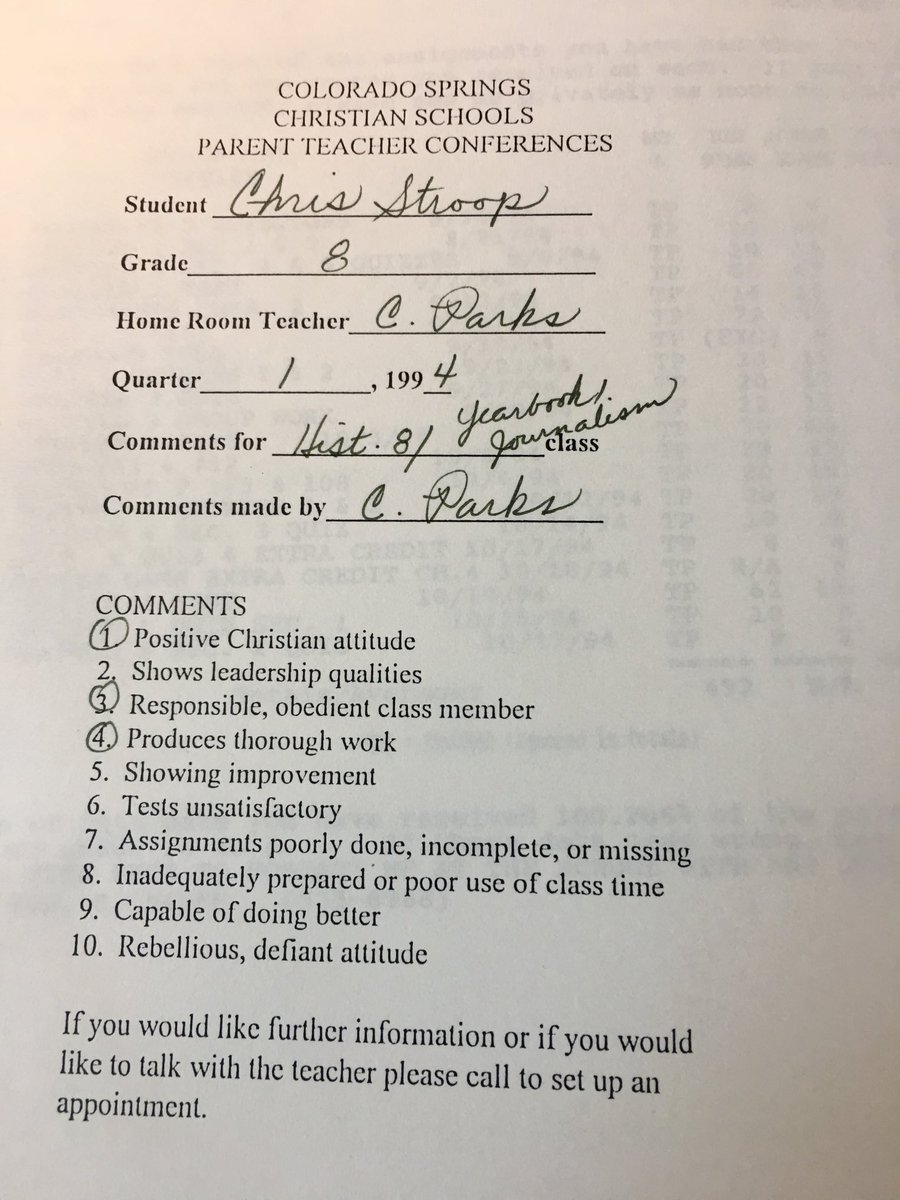 COLORADO SPRINGS
CHRISTIAN SCHOOLS
PARENT TEACHER CONFERENCES
Student Chris Stroop
Grade 8
Home Room Teacher C. Parks
Quarter 1, 1994
Yearbook/
Journalism
Comments for Hist. 8/ class
Comments made by C. Parks
COMMENTS
1. Positive Christian attitude
2. Shows leadership qualities
3. Responsible, obedient class member
4. Produces thorough work
5. Showing improvement
6. Tests unsatisfactory
7. Assignments poorly done, incomplete, or missing
8. Inadequately prepared or poor use of class time
9. Capable of doing better
10. Rebellious, defiant attitude
If you would like further information or if you would
like to talk with the teacher please call to set up an
appointment.